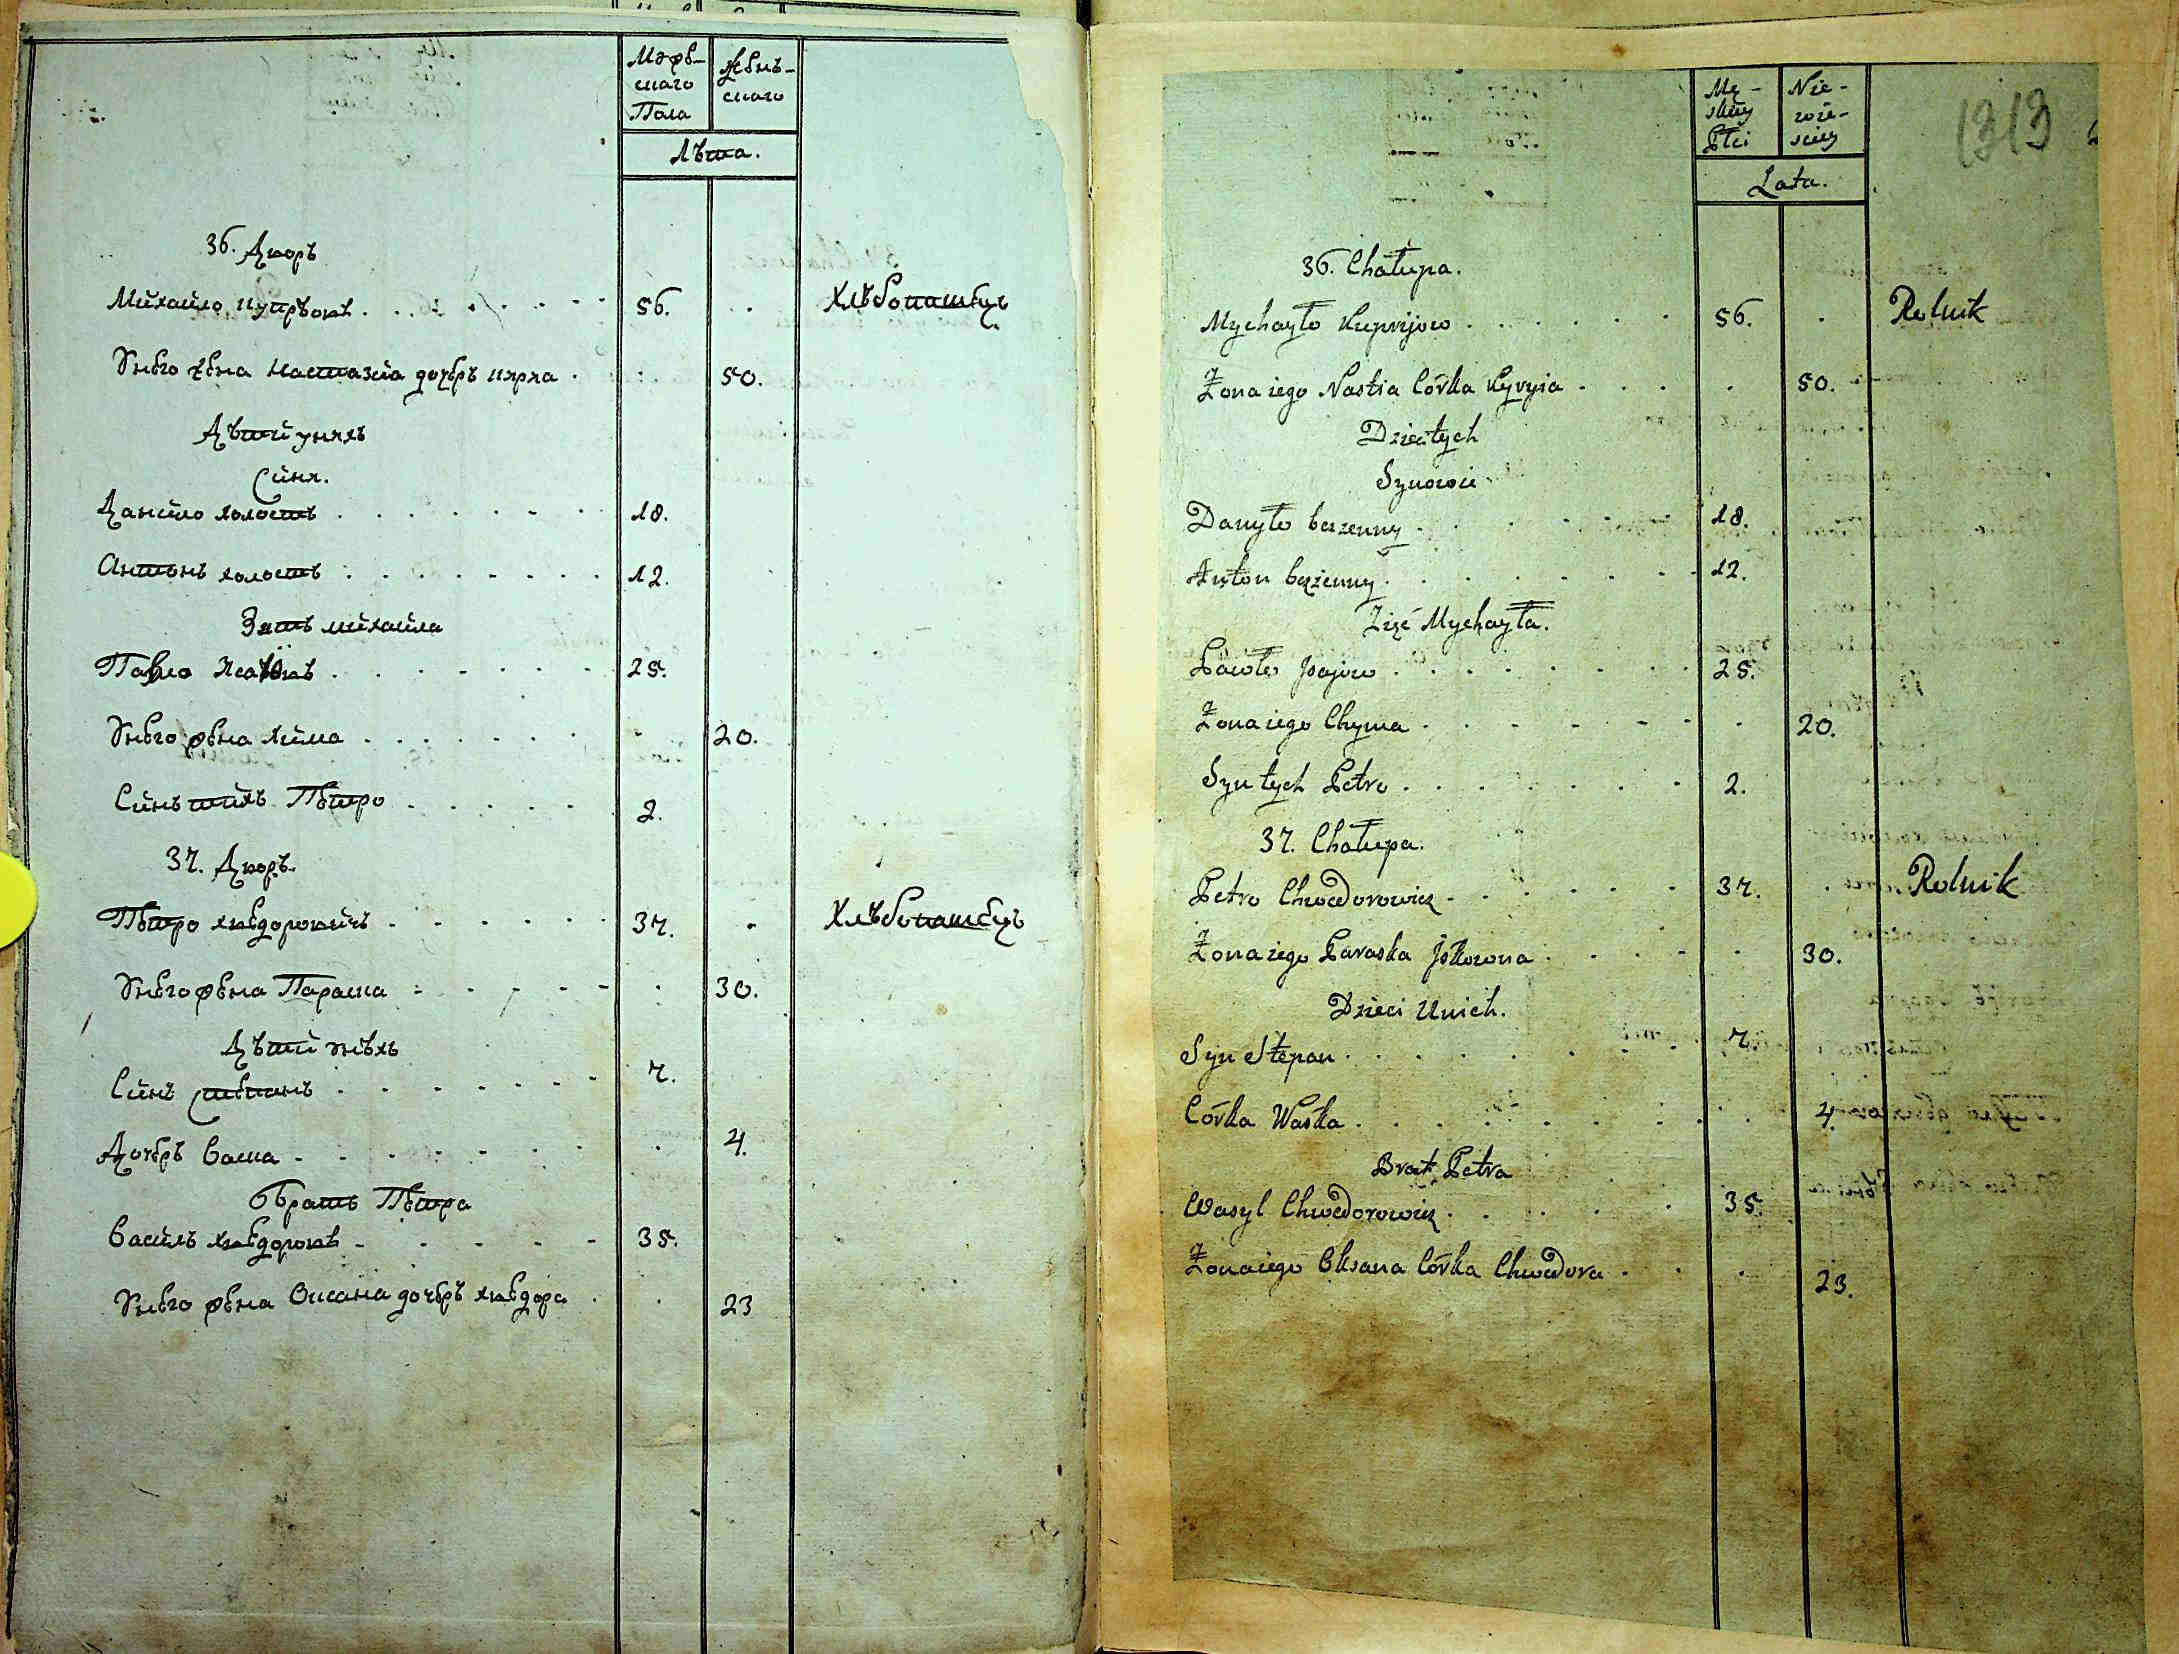 Мужескаго Пола
Женскаго
Лѣта.
36. Дворъ
Михайло Купрѣовъ 56. Хлѣбопашецъ
Унего жена Настазия дочерь Кирка 50.
Дѣти унихъ
Синя.
Данило холостъ 18.
Антонъ холостъ 12.
Зять михайла
Павло Исаювъ 25.
Унего жена Хима 20.
Синъ тихъ Петро 2.
37. Дворъ.
Петро хведоровичъ 37. Хлѣбопашецъ
Унего жена Параска 30.
Дѣти унихъ
Синъ Степанъ 7.
Дочерь Васка 4.
братъ Петра
Василь хведоровъ 35.
Унего жена Оксана дочерь хведора 23
Mę-
skiey
Płci
Nie-
wie-
sciey
1313
Lata.
36. Chałupa.
Mychayło Kuprijow 56. Rolnik
Żona iego Nastia Córka Kyryia 50.
Dzieci tych
Synowi
Danyło bezżenny 18.
Anton bezżenny 12.
Zięć Mychayła.
Pawło Jsajow 25.
Żona iego Chyma 20.
Syn tych Petro 2.
37. Chałupa.
Petro Chwedorowicz 37. Rolnik
Żona iego Paraska Jśkowna 30.
Dzieci Unich.
Syn Stepan 7
Córka Waśka 4.
Brat Petra
Wasyl Chwedorowicz 35.
Żona iego Oksana Córka Chwedora 23.